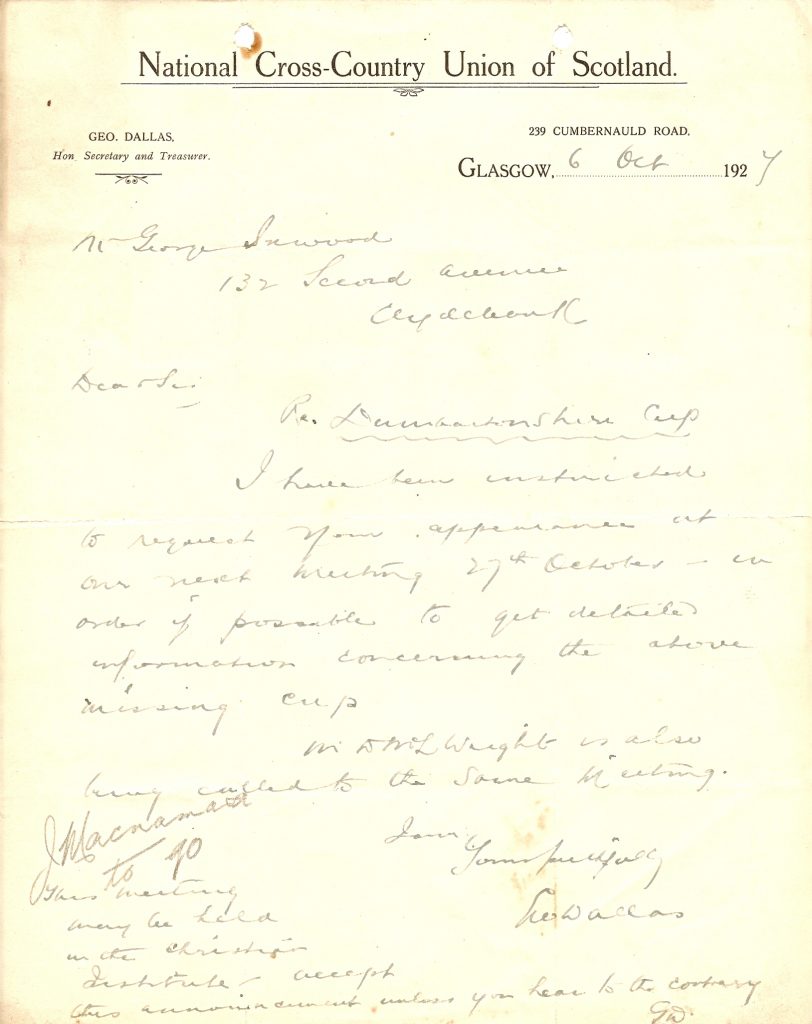 National Cross-Country Union of Scotland.
GEO. DALLAS,
Hon Secretary and Treasurer.
239 CUMBERNAULD ROAD,
GLASGOW, 6 Oct 1927
Mr George Inwood
132 Second Avenue
Clydebank
Dear Sir
Re. Dumbartonshire Cup
I have been instructed
to request your appearance at
our next meeting 27th October – in
order if possible to get detailed
information concerning the above
missing cup
Mr D McL Wright is also
being called to the same meeting.
I am
Yours faithfully
Geo Dallas
J Macnamara
to go
This meeting
may be held
in the Christian
Institute – accept
this announcement unless you hear to the contrary
GD.